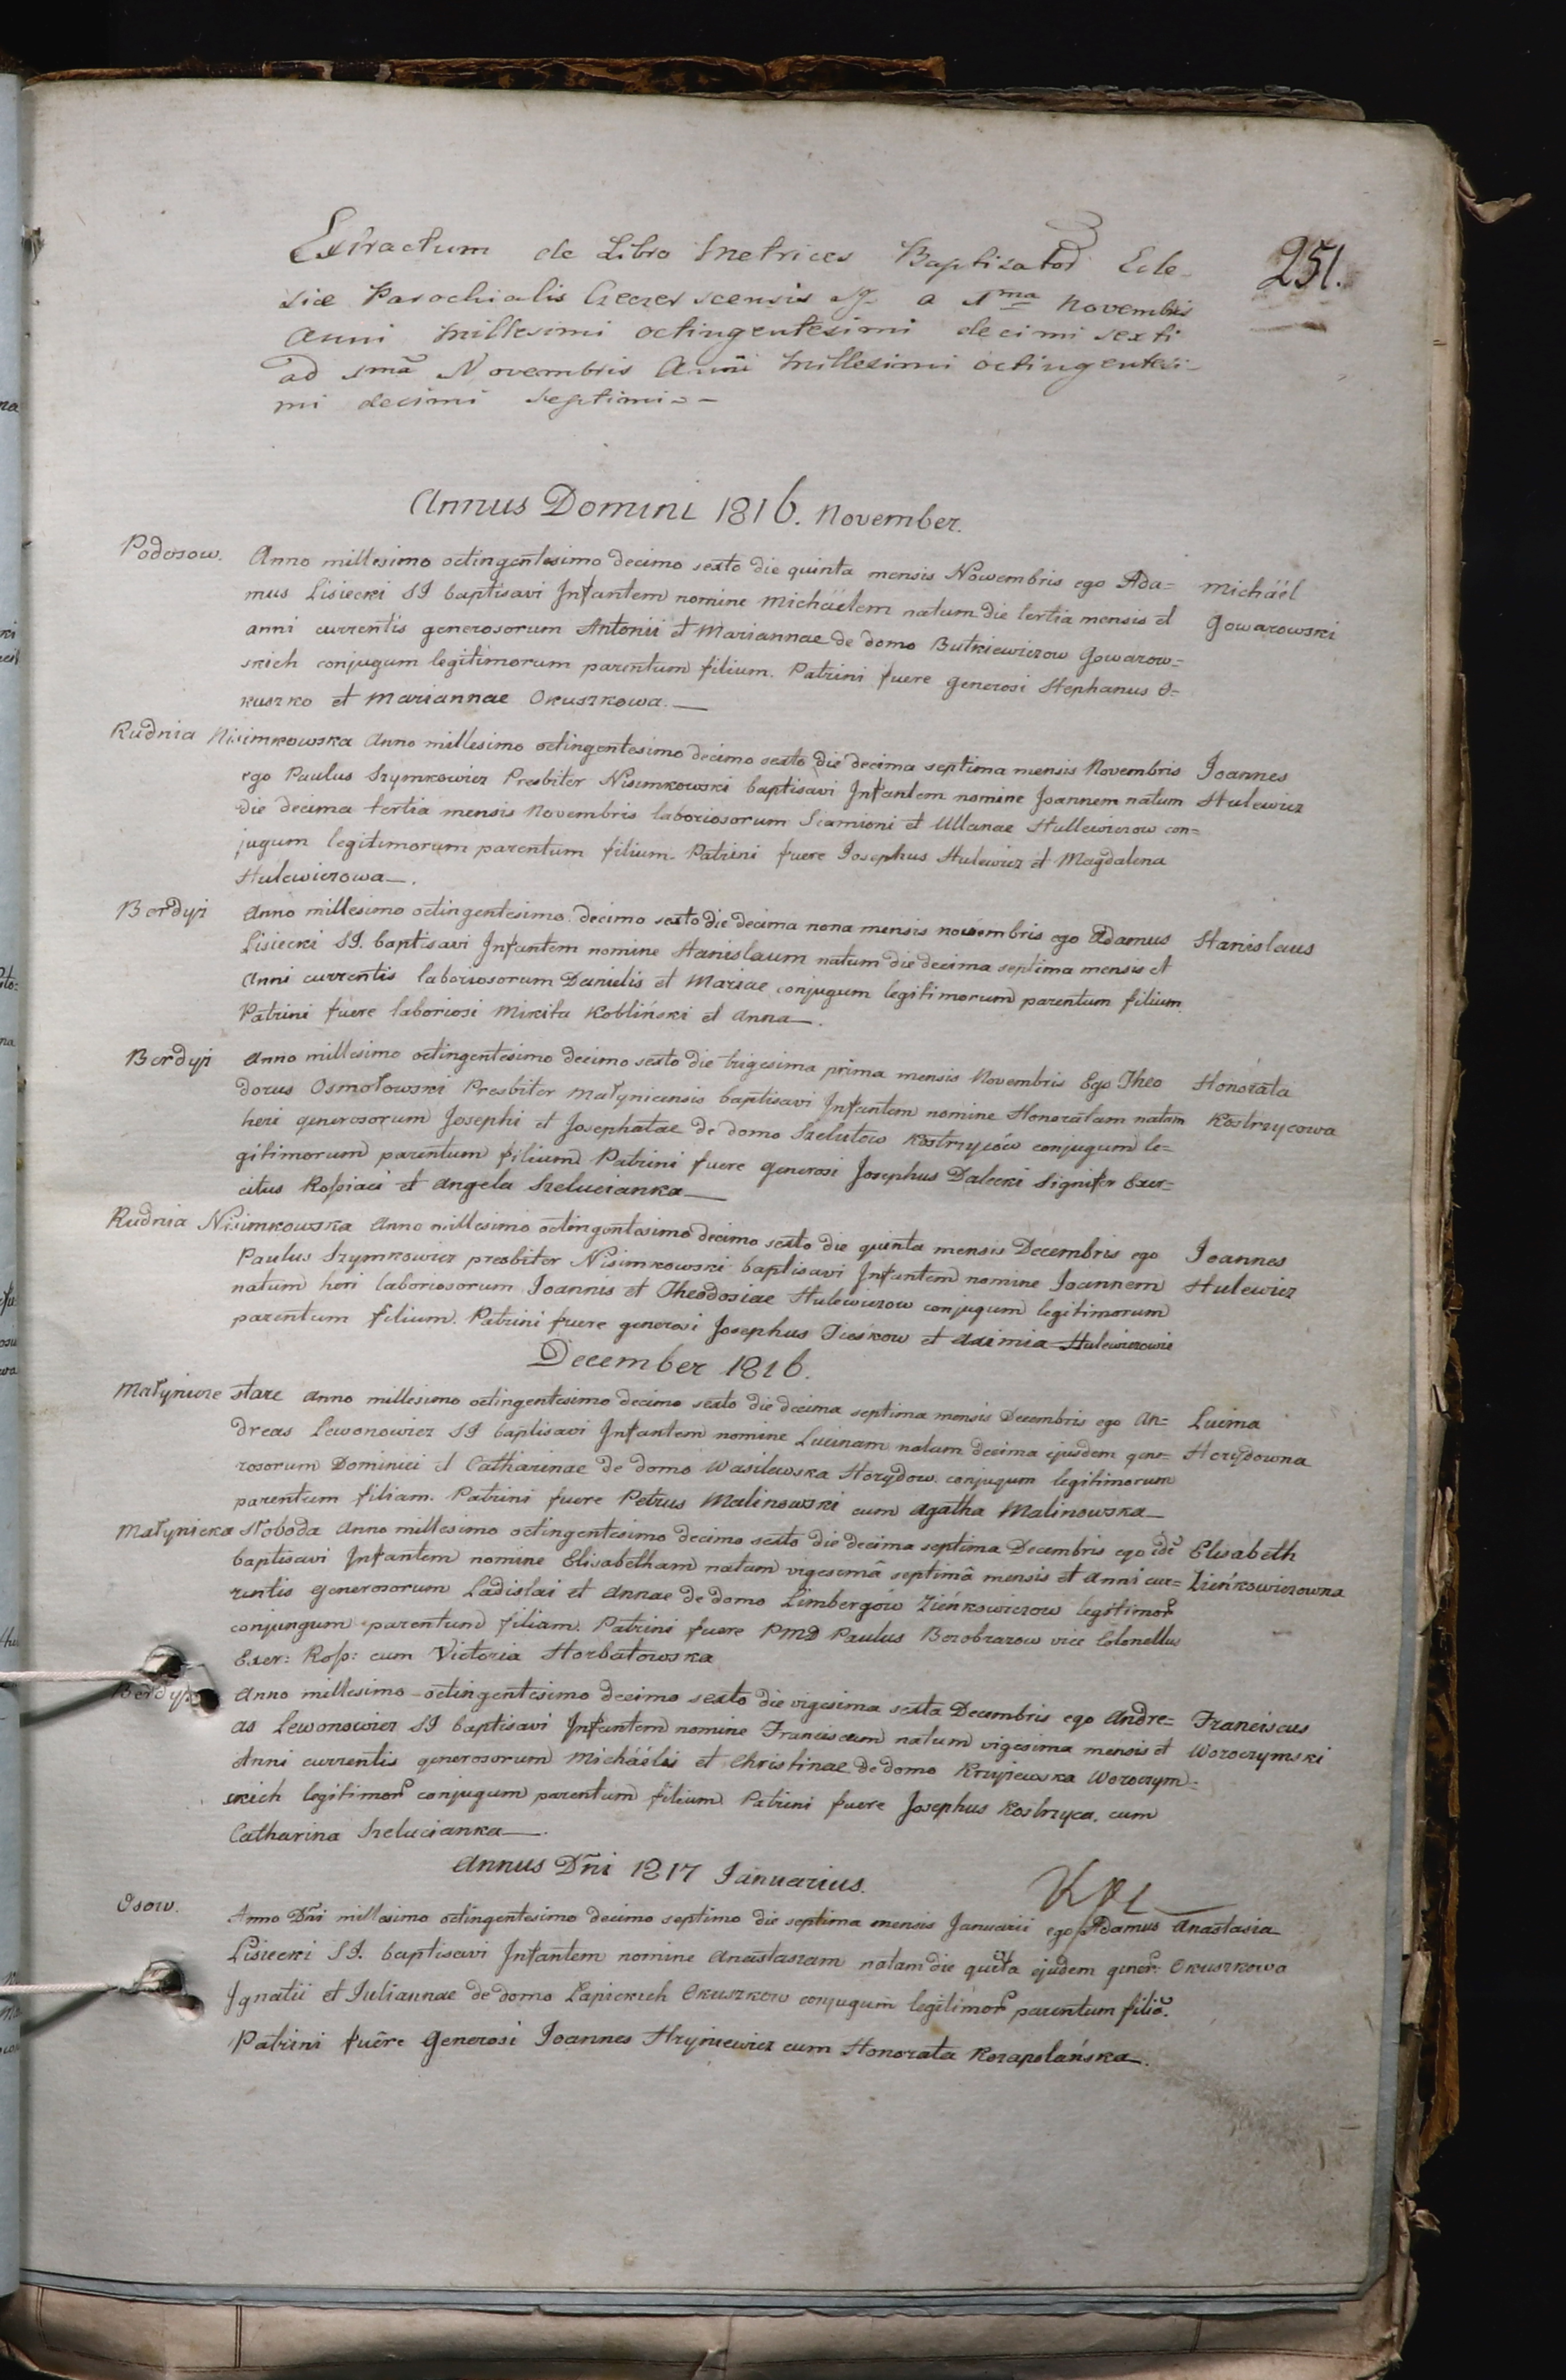 251.
Extractum de Libro Metrices Baptisator Ecle-
siæ Parochialis Czeczerscensis a 1ma Novembris
Anni Millesimi octingentesimi decimi sexti
ad 1mã Novembris Anni Millesimi octingentesi-
mi decimi septimi
Annus Domini 1816. November.
Podosow. Anno millesimo octingentesimo decimo sexto die quinta mensis Nowembris ego Ada= Michäël
mus Lisiecki SJ baptisavi Infantem nomine Michäëlem natum die tertia mensis et Gowarowski
anni currentis generosorum Antonii et Mariannae de domo Butkiewiczow Gowarow=
skich conjugum legitimorum parentum filium. Patrini fuere generosi Stephanus O=
kuszko et Mariannae Okuszkowa.
Rudnia Nisimkowska Anno millesimo octingentesimo decimo sexto die decima septima mensis Novembris Joannes
ego Paulus Szymkowicz Presbiter Nisimkowski baptisavi Infantem nomine Joannem natum Hulewicz
die decima tertia mensis Novembris laboriosorum Siamioni et Ullanae Hullewiczow con=
jugum legitimorum parentum filium. Patrini fuere Josephus Hulewicz et Magdalena
Hulewiczowa.
Berdyż Anno millesimo octingentesimo decimo sexto die decima nona mensis novembris ego Adamus Stanislaus
Lisiecki SJ. baptisavi Infantem nomine Stanislaum natum die decima septima mensis et
Anni currentis laboriosorum Danielis et Mariae conjugum legitimorum parentum filium
Patrini fuere laboriosi Mikita Kobliński et Anna.
Berdyż Anno millesimo octingentesimo decimo sexto die trigesima prima mensis Novembris Ego Theo Honorata
dorus Osmołowski Presbiter Małyniczensis baptisavi Infantem nomine Honoratam natam Kostrzycowa
heri generosorum Josephi et Josephatae de domo Szelutow Kostrzyców conjugum le=
gitimorum parentum filium Patrini fuere generosi Josephus Dalecki Signifer Exer=
citus Roßiaci et Angela Szelucianka
Rudnia Nisimkowska Anno millesimo octingentesimo decimo sexto die quinta mensis Decembris ego Joannes
Paulus Szymkowicz presbiter Nisimkowski baptisavi Infantem nomine Joannem Hulewicz
natum heri laboriosorum Joannis et Theodosiae Hulewiczow conjugum legitimorum
parentum filium. Patrini fuere generosi Josephus et Axinia Hulewiczowie
December 1816.
Małynicze stare Anno millesimo octingentesimo decimo sexto die decima septima mensis Decembris ego An= Lucina
dreas Lewonowicz SJ baptisavi Infantem nomine Lucinam natam decima ejusdem gene= Horydowna
rosorum Dominici et Catharinae de domo Wasilewska Horydow conjugum legitimorum
parentum filiam. Patrini fuere Petrus Malinowski cum Agatha Malinowska
Małynicka Słoboda Anno millesimo octingentesimo decimo sexto die decima septima Decembris ego idẽ Elisabeth
baptisavi Infantem nomine Elisabetham natam vigesemâ septimâ mensis et Anni cur= Zieńkowiczowna
rentis generosorum Ladislai et Annae de domo Limbergów Zieńkowiczow legitimor
conjungum parentum filiam. Patrini fuere PMD Paulus Bezobrazow vice Colonellus
Exer: Roß: cum Victoria Horbatowska
Berdyż Anno millesimo octingentesimo decimo sexto die vigesima sexta Decembris ego Andre= Franciscus
as Lewonowicz SJ baptisavi Infantem nomine Franciscum natum vigesima mensis et Woroczymski
Anni currentis generosorum Michäëlis et Christinae de domo Krzyżewska Woroczym=
skich legitimor conjugum parentum filium Patrini fuere Josephus Kostrzyca cum
Catharina Szelucianka.
Annus Dñi 1817 Januarius.
Osow. Anno Dñi millesimo octingentesimo decimo septimo die septima mensis Januarii ego Adamus Anastasia
Lisiecki SJ. baptisavi Infantem nomine Anastasiam natam die quĩta ejusdem gener: Okuszkowa
Ignatii et Juliannae de domo Łapickich Okuszkow conjugum legitimor parentum filiõ.
Patrini fuêre Generosi Joannes Hryniewicz cum Honorata Kozapolańska.